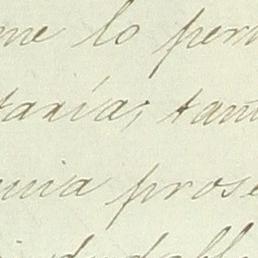 me lo perm
tarías, tant
uia prose